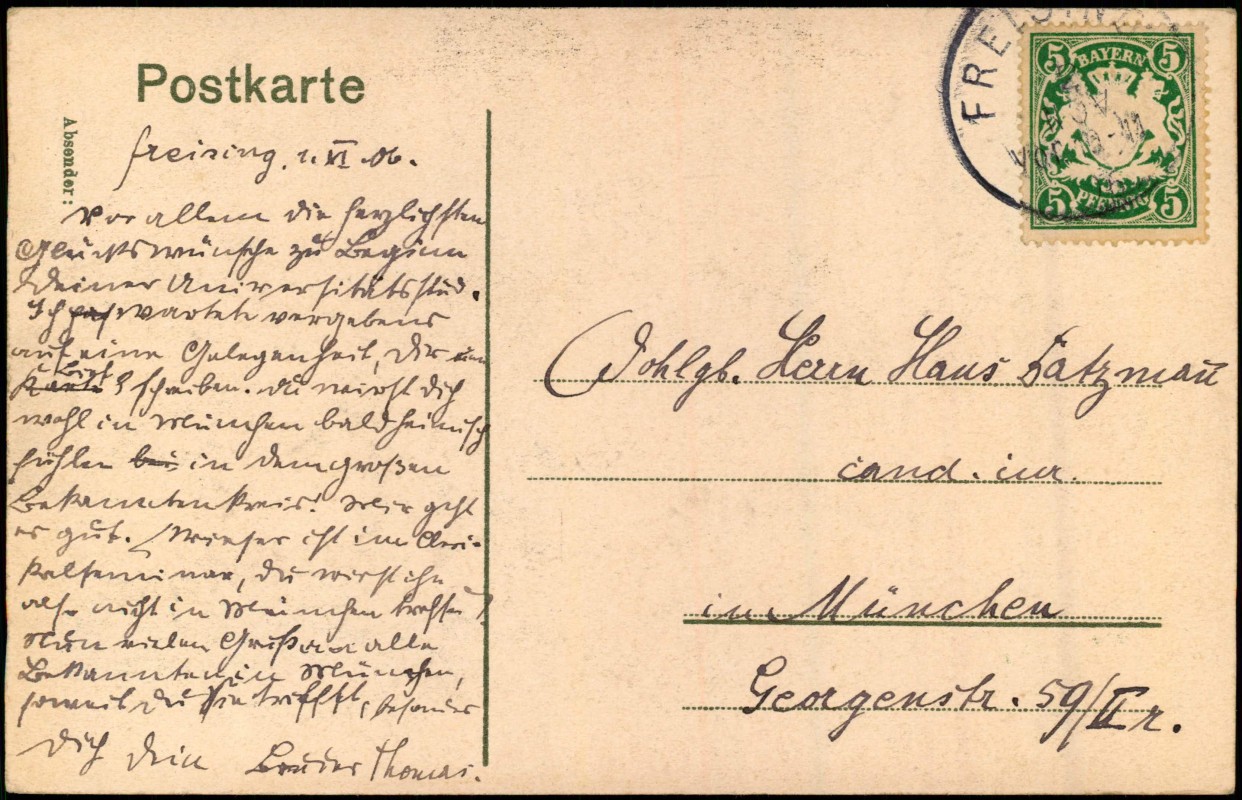 Postkarte
Absender:
Freising, 1. VI. 06.
Vor allem die herzlichsten
Glückswünsche zu Beginn
Deiner Universitätsstud.
Ich wartete vergebens
auf eine Gelegenheit, Dir
schreiben. Du wirst Dich
wohl in München bald heimisch
fühlen bei in dem großen
Bekanntenkreis! Mir geht
es gut. Wieser ist im Cleri-
kalseminar, Du wirst ihn
also nicht in München treffen!
Nun vielen Gruß an alle
Bekannten in München,
soweit Du sie triffst, besonders
Dich Dein Bruder Thomas.
FREISING
BAYERN
5 5
5 5
PFENNIG
Wohlgb. Herrn Hans Datzmañ
cand. iur.
in München
Georgenstr. 59/II r.